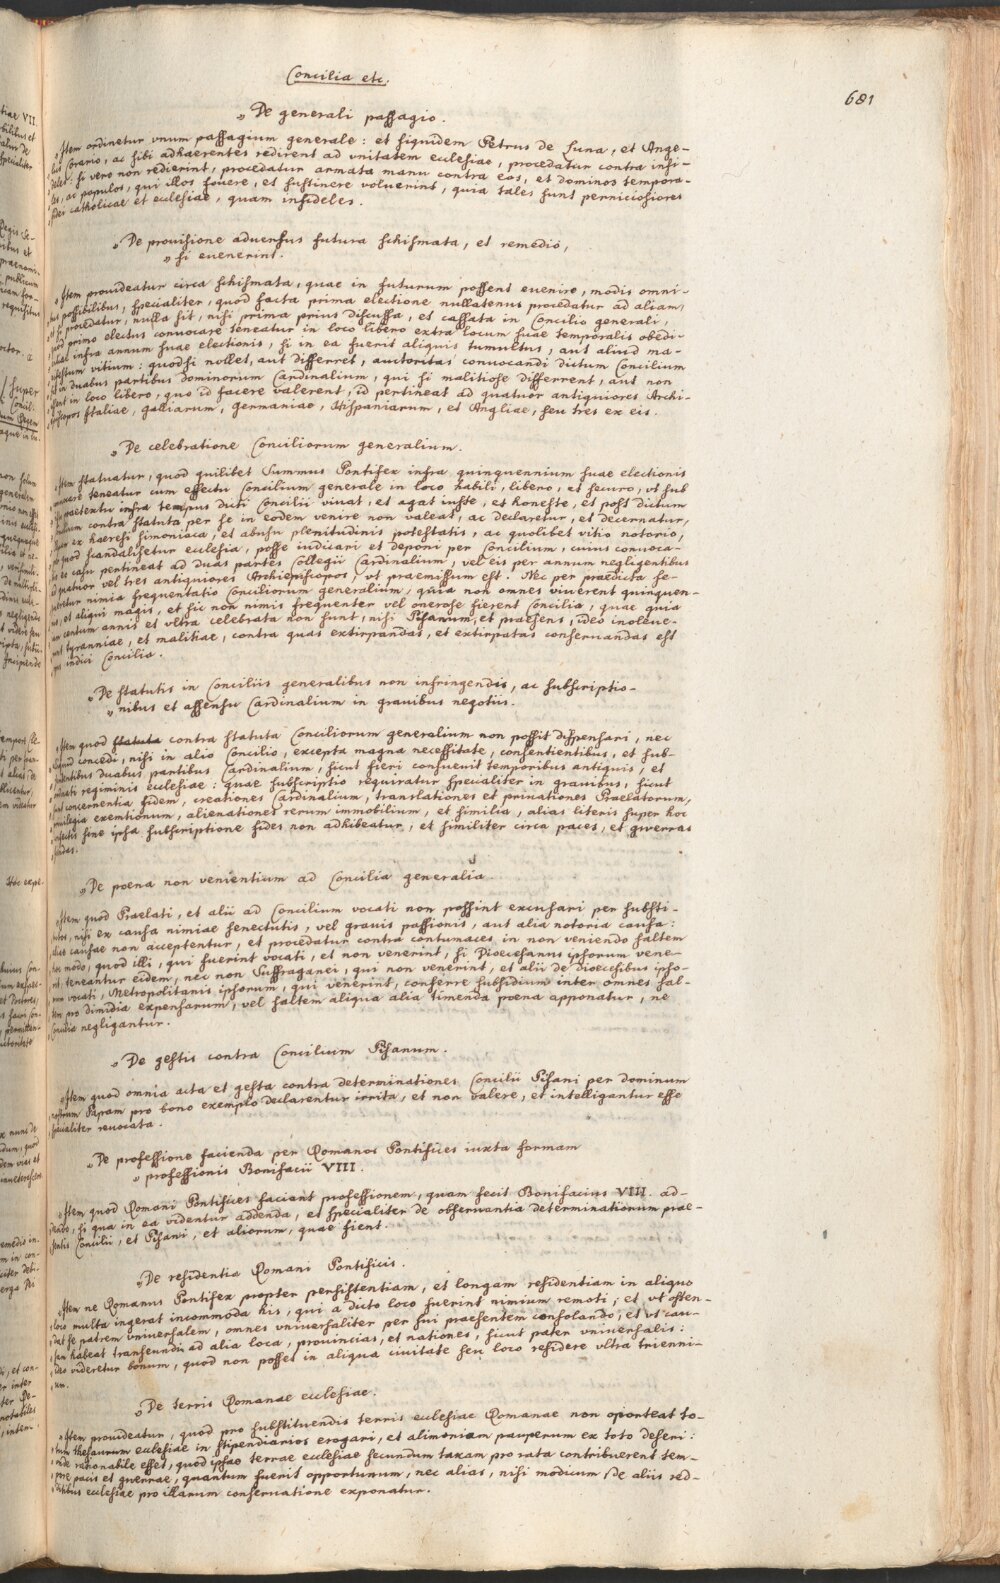 Concilia etc.
681
„ De generali passagio.
„ Item ordinetur vnum passagium generale: et siquidem Petrus de Luna, et Ange-
Corario, ac sibi adhaerentes redirent ad vnitatem ecclesiae, procedatur contra infi-
deles: si vero non redierint, procedatur armata manu contra eos, et dominos tempora-
les, ac populos, qui illos fouere, et sustinere voluerint, quia tales sunt perniciosiores
fidei catholicae et ecclesiae, quam infideles.
„ De prouisione aduersus futura schismata, et remedio,
„ si euenerint.
„ Item prouideatur circa schismata, quae in futurum possent euenire, modis omni-
bus possibilibus, specialiter, quod facta prima electione nullatenus procedatur ad aliam,
et si procedatur, nulla sit, nisi prima prius discussa, et cassata in Concilio generali,
quod primo electus conuocare teneatur in loco libero extra locum suae temporalis obedi-
infra annum suae electionis, si in ea fuerit aliquis tumultus, aut aliud ma-
nifestum vitium: quodsi nollet, aut differret, auctoritas conuocandi dictum Concilium
sit in duabus partibus dominorum Cardinalium, qui si malitiose differrent, aut non
essent in loco libero, quo id facere valerent, id pertineat ad quatuor antiquiores Archi-
episcopos Italiae, galliarum, germaniae, Hispaniarum, et Angliae, seu tres ex eis.
„ De celebratione Conciliorum generalium.
„ Item statuatur, quod quilibet Summus Pontifex infra quinquennium suae electionis
teneatur cum effectu Concilium generale in loco habili, libero, et securo, vt sub
praetextu infra tempus dicti Concilii viuat, et agat iuste, et honeste, et post dictum
contra statuta per se in eodem venire non valeat, ac declaretur, et decernatur,
ex haeresi simoniaca, et abusu plenitudinis potestatis, ac quolibet vitio notorio,
quod scandalisetur ecclesia, posse iudicari et deponi per Concilium, cuius conuoca-
tio eo casu pertineat ad duas partes Collegii Cardinalium, vel eis per annum negligentibus
ad quatuor vel tres antiquiores Archiepiscopos, vt praemissum est. Nec per praedicta se-
queretur nimia frequentatio Conciliorum generalium, quia non omnes viuerent quinquen-
et aliqui magis, et sic non nimis frequenter vel onerose fierent Concilia, quae quia
centum annis et vltra celebrata non sunt, nisi Pisanum, et praesens, ideo inoleue-
runt tyranniae, et malitiae, contra quas extirpandas, et extirpatas conseruandas est
opus indici Concilia.
„ De statutis in Conciliis generalibus non infringendis, ac subscriptio-
„ nibus et assensu Cardinalium in grauibus negotiis.
„ Item quod statuta contra statuta Conciliorum generalium non possit dispensari, nec
aliquid concedi, nisi in alio Concilio, excepta magna necessitate, consentientibus, et sub-
scribentibus duabus partibus Cardinalium, sicut fieri consueuit temporibus antiquis, et
regiminis ecclesiae: quae subscriptio requiratur specialiter in grauibus, sicut
sunt concernentia fidem, creationes Cardinalium, translationes et priuationes Praelatorum,
priuilegia exemtionum, alienationes rerum immobilium, et similia, alias literis super hoc
confectis sine ipsa subscriptione fides non adhibeatur, et similiter circa paces, et gwerras
„ De poena non venientium ad Concilia generalia.
„ Item quod Praelati, et alii ad Concilium vocati non possint excusari per substi-
tutos, nisi ex causa nimiae senectutis, vel grauis passionis, aut alia notoria causa:
aliae causae non acceptentur, et procedatur contra contumaces in non veniendo saltem
hoc modo, quod illi, qui fuerint vocati, et non venerint, si Dioecesanus ipsorum vene-
rit, teneantur eidem, nec non Suffraganei, qui non venerint, et alii de dioecesibus ipso-
rum vocati, Metropolitanis ipsorum, qui venerint, conferre subsidium inter omnes sal-
tem pro dimidia expensarum, vel saltem aliqua alia timenda poena apponatur, ne
Concilia negligantur.
„ De gestis contra Concilium Pisanum.
„ Item quod omnia acta et gesta contra determinationes Concilii Pisani per dominum
nostrum Papam pro bono exemplo declarentur irrita, et non valere, et intelligantur esse
specialiter reuocata.
„ De professione facienda per Romanos Pontifices iuxta formam
„ professionis Bonifacii VIII.
„ Item quod Romani Pontifices faciant professionem, quam fecit Bonifacius VIII. ad-
dendo, si qua in ea videntur addenda, et specialiter de obseruantia determinationum prae-
sentis Concilii, et Pisani, et aliorum, quae fient.
„ De residentia Romani Pontificis.
„ Item ne Romanus Pontifex propter persistentiam, et longam residentiam in aliquo
loco multa ingerat incommoda his, qui a dicto loco fuerint nimium remoti; et vt osten-
dat se patrem vniuersalem, omnes vniuersaliter per sui praesentem consolando, et vt cau-
sam habeat transeundi ad alia loca, prouincias, et nationes, sicut pater vniuersalis:
ideo videretur bonum, quod non posset in aliqua ciuitate seu loco residere vltra trienni-
um.
„ De terris Romanae ecclesiae.
„ Item prouideatur, quod pro substituendis terris ecclesiae Romanae non oporteat to-
tum thesaurum ecclesiae in stipendiarios erogari, et alimoniam pauperum ex toto deseri:
vnde rationabile esset, quod ipsae terrae ecclesiae secundum taxam pro rata contribuerent tem-
pore pacis et guerrae, quantum fuerit opportunum, nec alias, nisi modicum, de aliis red-
ditibus ecclesiae pro illarum conseruatione exponatur.